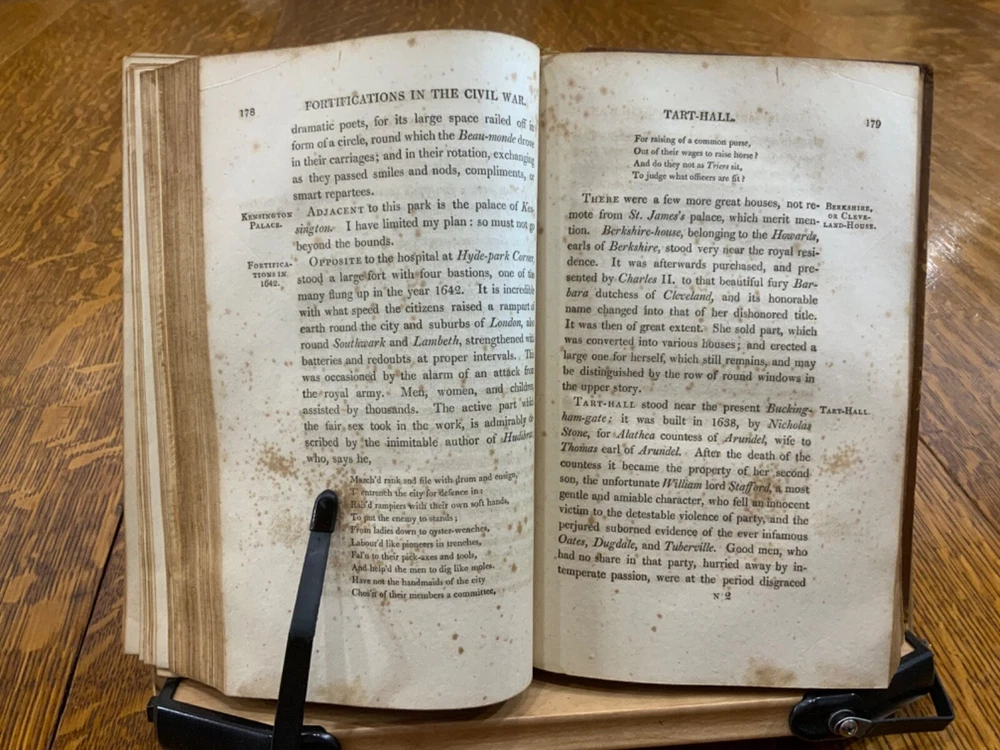 178
FORTIFICATIONS IN THE CIVIL WAR.
dramatic poets, for its large space railed off in
form of a circle, round which the Beau-monde drove
in their carriages; and in their rotation, exchanging
as they passed smiles and nods, compliments, or
smart repartees.
KENSINGTON
PALACE.
ADJACENT to this park is the palace of Ken-
sington. I have limited my plan: so must not go
beyond the bounds.
FORTIFICA-
TIONS IN
1642.
OPPOSITE to the hospital at Hyde-park Corner,
stood a large fort with four bastions, one of the
many flung up in the year 1642. It is incredible
with what speed the citizens raised a rampart of
earth round the city and suburbs of London, also
round Southwark and Lambeth, strengthened with
batteries and redoubts at proper intervals. This
was occasioned by the alarm of an attack from
the royal army. Men, women, and children,
assisted by thousands. The active part which
the fair sex took in the work, is admirably de-
scribed by the inimitable author of Hudibras,
who, says he,
March'd rank and file with drum and ensign,
T' entrench the city for defence in:
Rais'd rampiers with their own soft hands,
To put the enemy to stands;
From ladies down to oyster-wenches,
Labour'd like pioneers in trenches,
Fal'n to their pick-axes and tools,
And help'd the men to dig like moles.
Have not the handmaids of the city
Chos'n of their members a committee,
TART-HALL.
179
For raising of a common purse,
Out of their wages to raise horse?
And do they not as Triers sit,
To judge what officers are fit?
BERKSHIRE,
OR CLEVE-
LAND-HOUSE.
THERE were a few more great houses, not re-
mote from St. James's palace, which merit men-
tion. Berkshire-house, belonging to the Howards,
earls of Berkshire, stood very near the royal resi-
dence. It was afterwards purchased, and pre-
sented by Charles II. to that beautiful fury Bar-
bara dutchess of Cleveland, and its honorable
name changed into that of her dishonored title.
It was then of great extent. She sold part, which
was converted into various houses; and erected a
large one for herself, which still remains, and may
be distinguished by the row of round windows in
the upper story.
TART-HALL
TART-HALL stood near the present Bucking-
ham-gate; it was built in 1638, by Nicholas
Stone, for Alathea countess of Arundel, wife to
Thomas earl of Arundel. After the death of the
countess it became the property of her second
son, the unfortunate William lord Stafford, a most
gentle and amiable character, who fell an innocent
victim to the detestable violence of party, and the
perjured suborned evidence of the ever infamous
Oates, Dugdale, and Tuberville. Good men, who
had no share in that party, hurried away by in-
temperate passion, were at the period disgraced
N 2